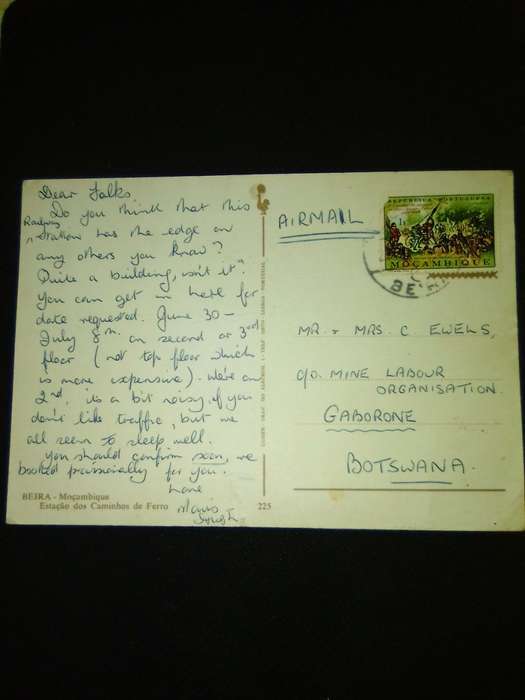 Dear Folks
Do you think that this
Railway
station has the edge on
any others you know?
Quite a building, isn't it"
You can get in here for
date requested. June 30 -
July 8th. on second or 3rd
floor (not top floor which
is more expensive). We're on
2nd, its a bit noisy, if you
don't like traffic, but we
all seem to sleep well.
You should confirm soon, we
booked provisionally for you.
Love
BEIRA - Moçambique
Estação dos Caminhos de Ferro
225
AIRMAIL
REPÚBLICA PORTUGUESA
MOÇAMBIQUE
BEIRA
MR. & MRS. C EWELS,
C/O. MINE LABOUR
ORGANISATION.
GABORONE
BOTSWANA.